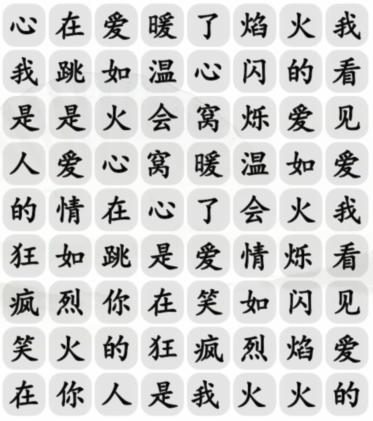 心在爱暖了焰火我
我跳如温心闪的看
是是火会窝烁爱见
人爱心窝暖温如爱
的情在心了会火我
狂如跳是爱情烁看
疯烈你在笑如闪见
笑火的狂疯烈焰爱
在你人是我火火的